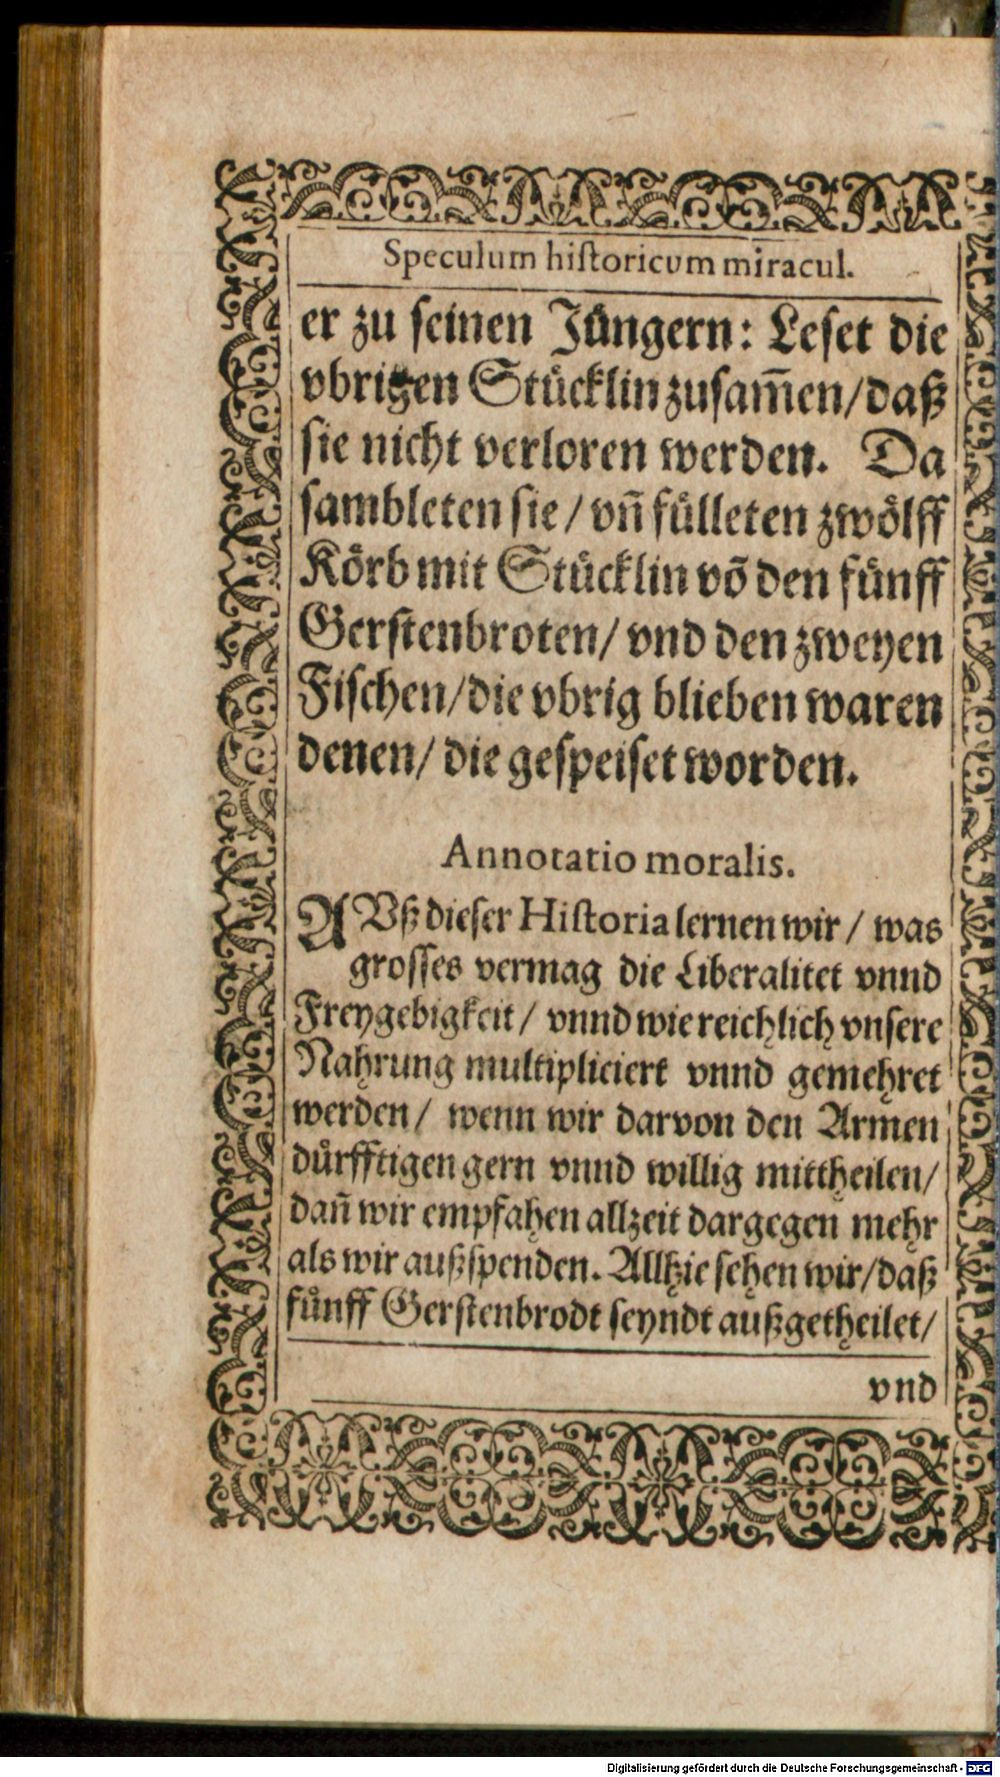 Speculum hiſtoricvm miracul.
er zu ſeinen Jüngern: Leſet die
vbrigen Stücklin zuſam̃en/daß
ſie nicht verloren werden. Da
ſambleten ſie/ vñ fülleten zwölff
Körb mit Stücklin võ den fünff
Gerſtenbroten/ vnd den zweyen
Fiſchen/die vbrig blieben waren
denen/ die geſpeiſet worden.
Annotatio moralis.
AVß dieſer Hiſtoria lernen wir/ was
groſſes vermag die Liberalitet vnnd
Freygebigkeit/ vnnd wie reichlich vnſere
Nahrung multipliciert vnnd gemehret
werden/ wenn wir darvon den Armen
dürfftigen gern vnnd willig mittheilen/
dañ wir empfahen allzeit dargegen mehr
als wir außſpenden. Allhie ſehen wir/daß
fünff Gerſtenbrodt ſeyndt außgetheilet/
vnd
Digitalisierung gefördert durch die Deutsche Forschungsgemeinschaft - DFG